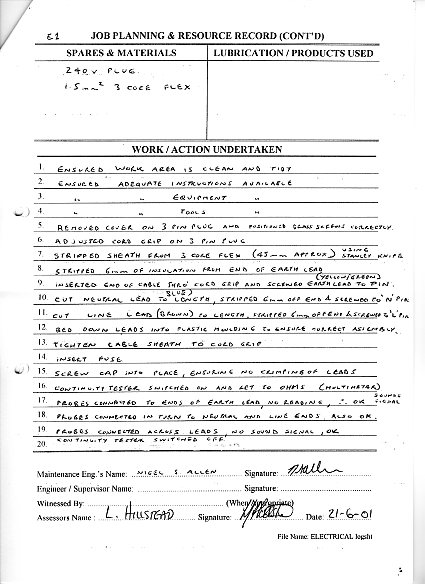 E1 JOB PLANNING & RESOURCE RECORD (CONT'D)
SPARES & MATERIALS LUBRICATION / PRODUCTS USED
240 V PLUG.
1.5mm² 3 CORE FLEX
WORK / ACTION UNDERTAKEN
1. ENSURED WORK AREA IS CLEAN AND TIDY
2. ENSURED ADEQUATE INSTRUCTIONS AVAILABLE
3. " " EQUIPMENT "
4. " " TOOLS "
5. REMOVED COVER ON 3 PIN PLUG AND POSITIONED SCREWS CORRECTLY.
6. ADJUSTED CORD GRIP ON 3 PIN PLUG
7. STRIPPED SHEATH FROM 3 CORE FLEX (45mm APPROX) USING STANLEY KNIFE
8. STRIPPED 6mm OF INSULATION FROM END OF EARTH LEAD (YELLOW/GREEN)
9. INSERTED END OF CABLE THRO' CORD GRIP AND SCREWED EARTH LEAD TO PIN.
10. CUT NEUTRAL LEAD (BLUE) TO LENGTH, STRIPPED 6mm OFF END & SCREWED TO 'N' PIN
11. CUT LINE LEAD (BROWN) TO LENGTH, STRIPPED 6mm OFF END & SCREWED TO 'L' PIN
12. BED DOWN LEADS INTO PLASTIC MOULDING TO ENSURE CORRECT ASSEMBLY.
13. TIGHTEN CABLE SHEATH TO CORD GRIP
14. INSERT FUSE
15. SCREW CAP INTO PLACE, ENSURING NO CRIMPING OF LEADS
16. CONTINUITY TESTER SWITCHED ON AND SET TO OHMS (MULTIMETER)
17. PROBES CONNECTED TO ENDS OF EARTH LEAD NO READING, ∴ OK SOUNDS SIGNAL
18. PROBES CONNECTED IN TURN TO NEUTRAL AND LINE ENDS, ALSO OK.
19. PROBES CONNECTED ACROSS LEADS, NO SOUND SIGNAL, OK
20. CONTINUITY TESTER SWITCHED OFF.
Maintenance Eng.'s Name: NIGEL S ALLEN Signature:
Engineer / Supervisor Name: Signature:
Witnessed By: (When Appropriate)
Assessors Name: L. HILLSTEAD Signature: Date: 21-6-01
File Name: ELECTRICAL logsht